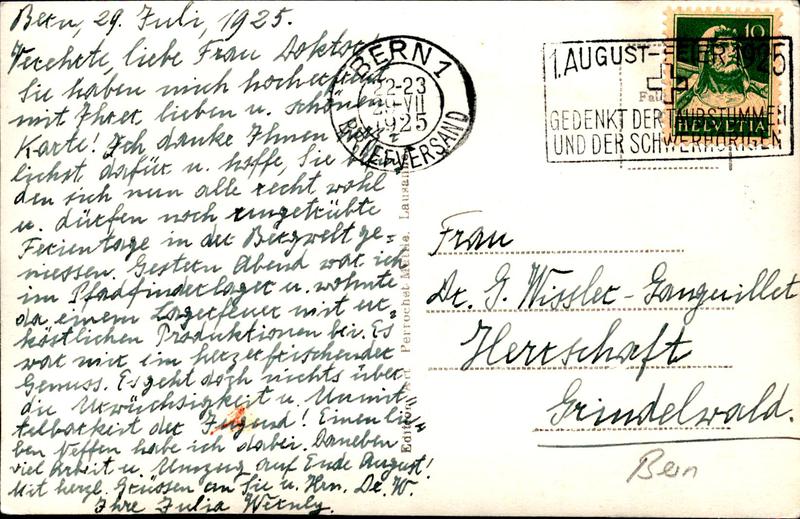 Bern, 29. Juli, 1925.
Verehrte, liebe Frau Doktor!
Sie haben mich hocherfreut
mit Ihrer lieben u. schönen
Karte! Ich danke Ihnen herz=
lichst dafür u. hoffe, Sie befin=
den sich nun alle recht wohl
u. dürfen noch ungetrübte
Ferientage in der Bergwelt ge=
niessen. Gestern Abend war ich
im Pfadfinderlager u. wohnte
da einem Lagerfeuer mit er=
köstlichen Produktionen bei. Es
war mir ein herzerfrischender
Genuss. Es geht doch nichts über
die Urwüchsigkeit u. Unmit=
telbarkeit der Jugend! Einen lie=
ben Neffen habe ich dabei. Daneben
viel Arbeit u. Umzug auf Ende August!
Mit herzl. Grüssen an Sie u. Hrn. Dr. W.
Ihre Julia Wernly.
BERN 1
22-23
29.VII
1925
BRIEFVERSAND
1. AUGUST-FEIER 1925
GEDENKT DER TAUBSTUMMEN
UND DER SCHWERHÖRIGEN
10
HELVETIA
Edition Art. Perrochet-Matile, Lausanne
Frau
Dr. G. Wissler-Ganguillet
Herrschaft
Grindelwald.
Bern